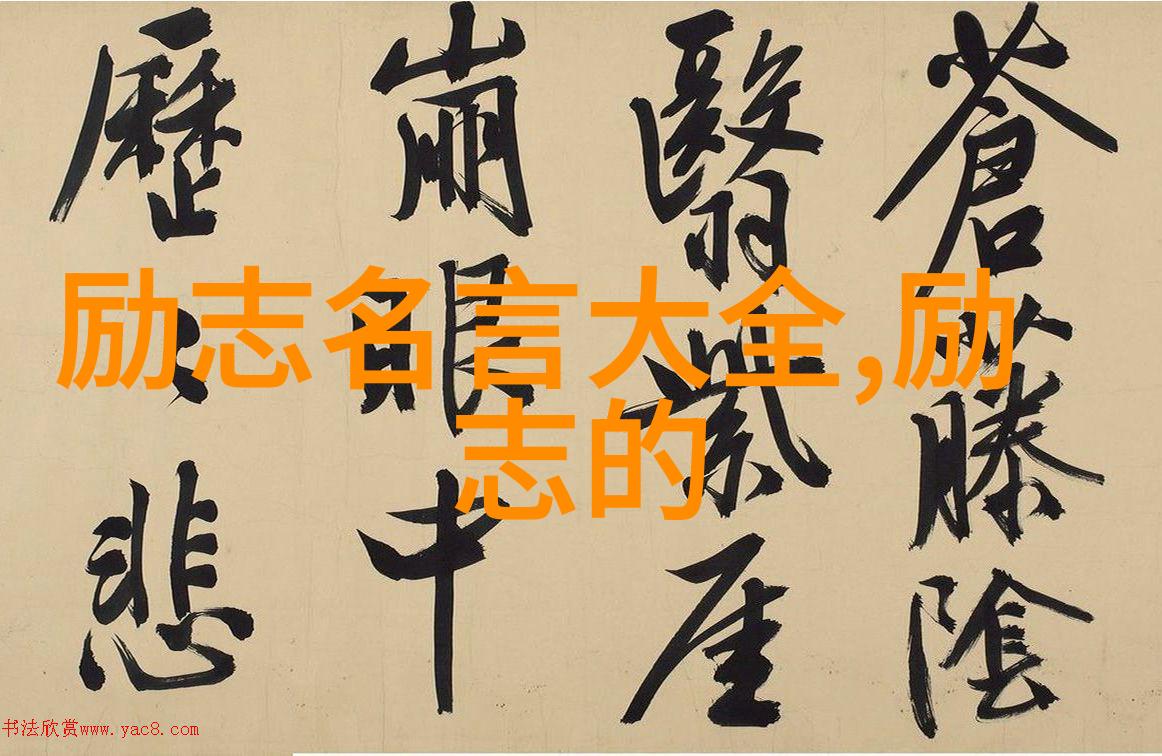 蒼藤陰
翳紫厓
崩眼中
歷悲
励志名言大全,励
志的
书法欣赏www.yac8.com